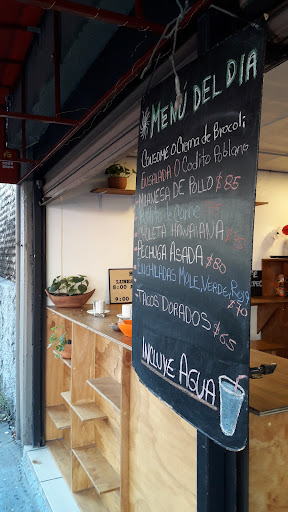 MENÚ DEL DIA
CONSOME O Crema de Brocoli;
ENSALADA O Codito Poblano
MILANESA DE POLLO $85
CHULETA HAWAIANA
PECHUGA ASADA $80
ENCHILADAS MOLE, VERDE, ROJO $70
TACOS DORADOS $65
INCLUYE AGUA
LUNE
8:00
9:00